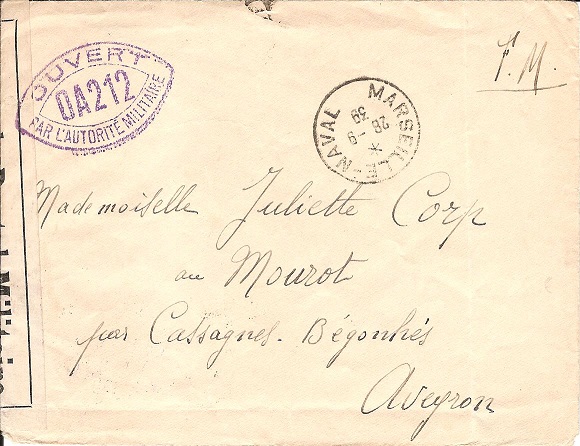 OUVERT
OA212
PAR L'AUTORITÉ MILITAIRE
MARSEILLE-NAVAL
28 -9
39
F.M.
Mademoiselle Juliette Corp
au Mourot
par Cassagnes-Bégonhés
Aveyron